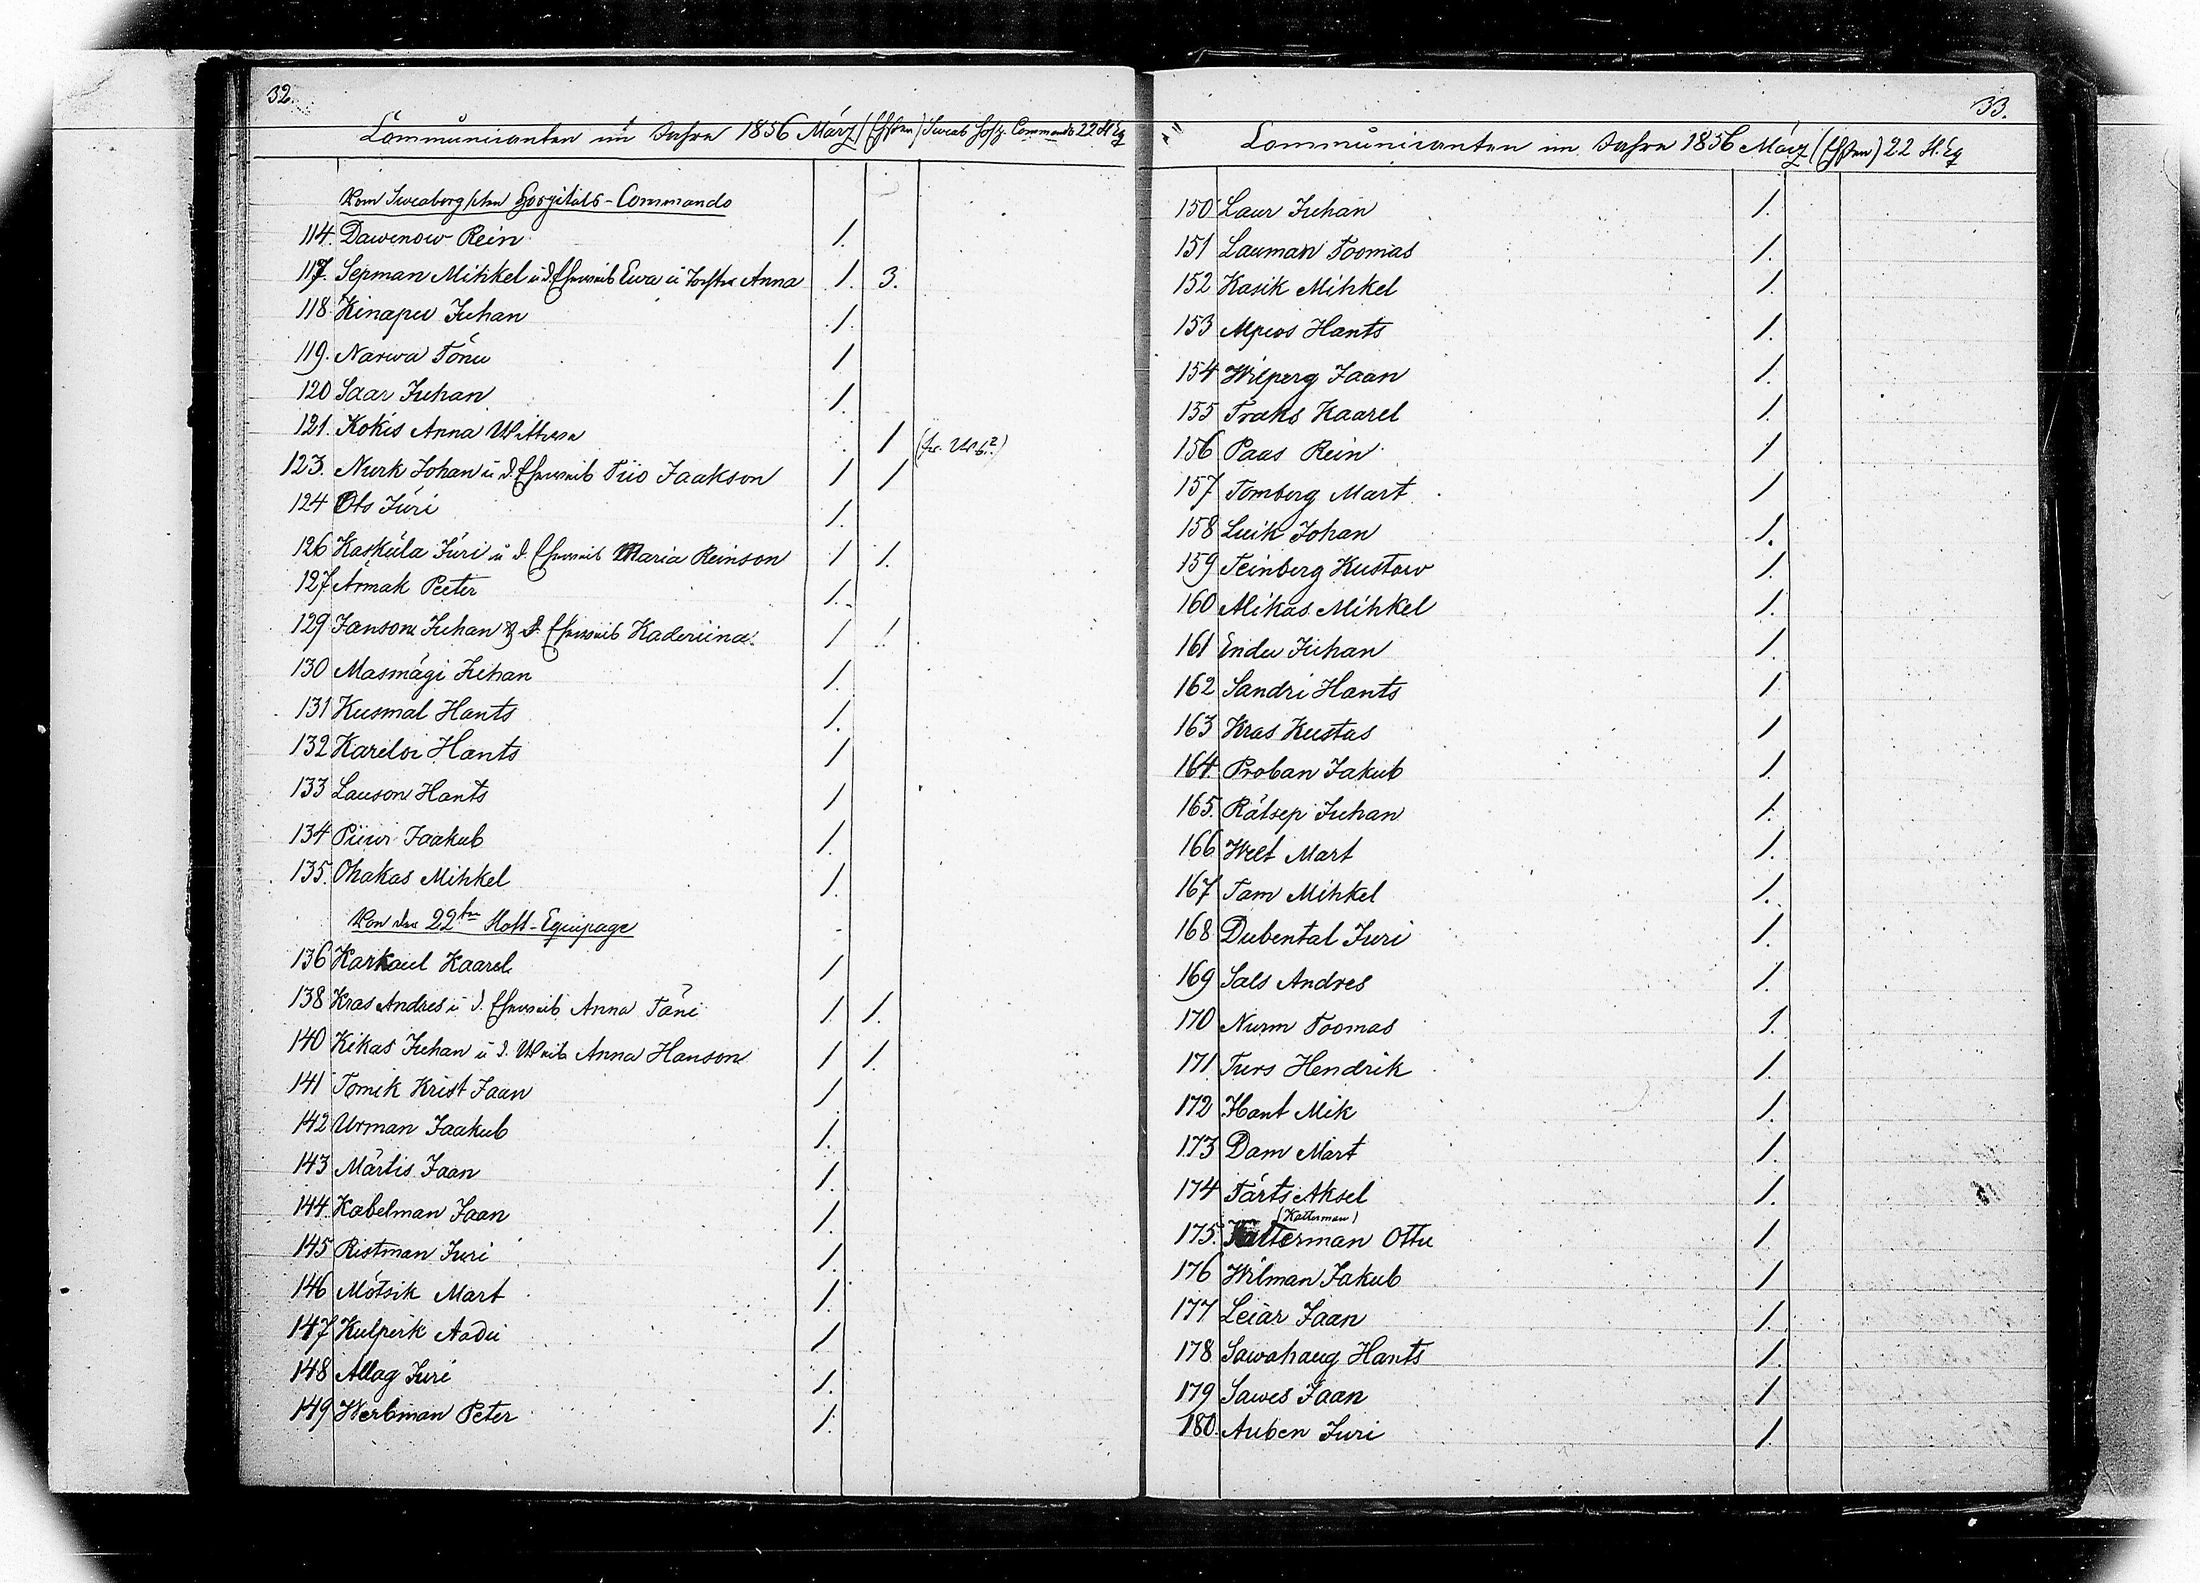 32.
Communicanten im Jahre 1856 März (Ehsten) Sweab. Hosp. Commando 22 Fl. Eq
Vom Sweaborgschen Hospitals-Commando
114. Dawenow Rein 1.
117. Sepman Mihkel u d. Eheweib Ewa u Tochter Anna 1. 3.
118. Kinapu Juhan 1.
119. Narwa Tönu 1
120 Saar Juhan 1.
121. Kokis Anna Wittwe 1
123. Nurk Johan u d. Eheweib Tiio Jaakson 1 1
124 Ots Jüri 1.
126 Kasküla Jüri u d. Eheweib Maria Reinson 1 1.
127 Ärmak Peeter 1.
129 Janson Juhan & d. Eheweib Kaderiina. 1 1.
130 Masmägi Juhan 1.
131 Kusmal Hants 1.
132 Kareloi Hants 1
133 Lauson Hants 1
134 Püwi Jaakub 1.
135. Ohakas Mihkel 1.
Von der 22ten Flott-Equipage
136 Karkaul Kaarel 1
138 Kras Andres u d. Eheweib Anna Täni 1 1.
140 Kikas Juhan u d. Weib Anna Hanson 1 1.
141 Tomik Krist Jaan 1.
142 Urman Jaakub 1.
143 Märtis Jaan 1.
144. Kabelman Jaan 1.
145 Ristman Juri 1.
146 Mötsik Mart 1.
147 Kulperk Aadu 1
148 Allag Juri 1.
149 Werbman Peter 1.
33.
Communicanten im Jahre 1856 März (Ehsten) 22 Fl. Eq
150 Laur Juhan 1.
151 Lauman Toomas 1.
152 Kasik Mihkel 1.
153 Hants 1.
154 Wilperg Jaan 1.
155 Traks Kaarel 1.
156 Paas Rein 1
157 Tomberg Mart 1
158 Luik Johan 1.
159 Teinberg Kustaw 1.
160 Alikas Mihkel 1.
161 Endu Juhan 1.
162 Sandri Hants 1
163 Kras Kustas 1
164. Proban Jakub 1.
165. Rätsep Juhan 1.
166 Welt Mart 1.
167 Tam Mihkel 1.
168 Dubental Juri 1.
169 Sals Andres 1.
170 Nurm Toomas 1.
171 Turs Hendrik 1.
172 Hant Mik 1.
173 Dam Mart 1.
174 Tärts Aksel 1.
(Katterman)
175. Katterman Ottu 1
176 Wilman Jakub 1
177 Leiar Jaan 1.
178 Sawahaug Hants 1.
179 Sawes Jaan 1
180. Auben Juri 1.